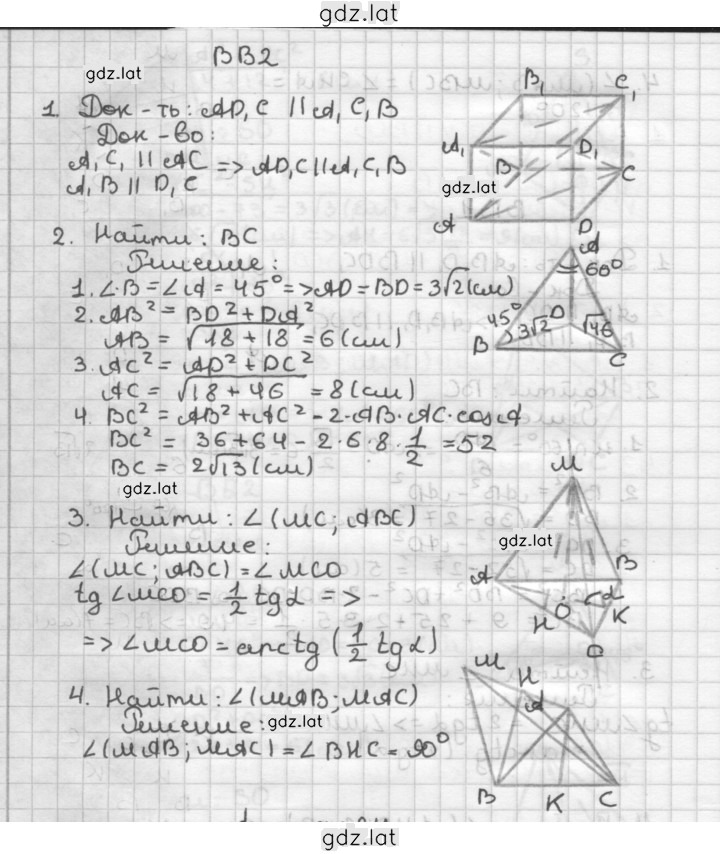 gdz.lat
ВВ2
gdz.lat
1. Док-ть: AD₁C || A₁C₁B
Док-во:
A₁C₁ || AC => AD₁C || A₁C₁B
A₁B || D₁C
B₁ C₁
A₁ D₁
B C
gdz.lat
A D
2. Найти: BC
Решение:
1. ∠B = ∠A = 45° => AD = BD = 3√2 (см)
2. AB² = BD² + DA²
AB = √18 + 18 = 6 (см)
3. AC² = AD² + DC²
AC = √18 + 46 = 8 (см)
4. BC² = AB² + AC² - 2·AB·AC·cosA
BC² = 36 + 64 - 2·6·8·1/2 = 52
BC = 2√13 (см)
A
60°
45° D
3√2 √46
B C
gdz.lat
3. Найти: ∠(MC; ABC)
Решение:
∠(MC; ABC) = ∠MCO
tg ∠MCO = 1/2 tgα =>
=> ∠MCO = arctg (1/2 tgα)
M
gdz.lat
A B
O α
H K
C
4. Найти: ∠(MAB; MAC)
Решение: gdz.lat
∠(MAB; MAC) = ∠BHC = 90°
M H
A
B K C
gdz.lat